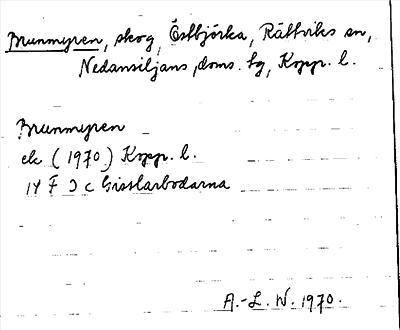 Brunmyren, skog, Östbjörka, Rättviks sn,
Nedansiljans doms. tg, Kopp. l.
Brunmyren
ek (1970) Kopp. l.
14 F 3 c Gisslarbodarna
A.-L. W. 1970.